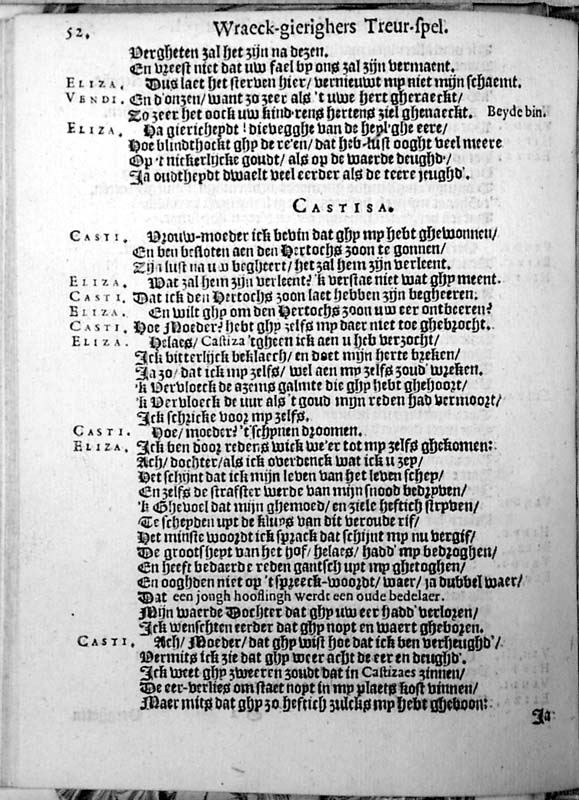 52. Wraeck-gierighers Treur-spel.
Vergheten zal het zijn na dezen.
En vreest niet dat uw fael by ons zal zijn vermaent.
ELIZA. Dus laet het sterven hier/ vernieuwt my niet mijn schaemt.
VENDI. En d'onzen/ want zo zeer als 't uwe hert gheraeckt/
Zo zeer het oock uw kind'rens hertens ziel ghenaeckt. Beyde bin.
ELIZA. Ha giericheydt! dievegghe van de heyl'ghe eere/
Hoe blindthockt ghy de re'en/ dat heb-lust ooght veel meere
Op 't nickerlycke goudt/ als op de waerde deughd'/
Ja oudtheydt dwaelt veel eerder als de teere jeughd'.
CASTISA.
CASTI. Vrouw-moeder ick bevin dat ghy my hebt ghewonnen/
En ben besloten aen den Hertochs zoon te gonnen/
Zijn lust na uw begheert/ het zal hem zijn verleent.
ELIZA. Wat zal hem zijn verleent? 'k verstae niet wat ghy meent.
CASTI. Dat ick den Hertochs zoon laet hebben zijn begheeren.
ELIZA. En wilt ghy om den Hertochs zoon uw eer ontbeeren?
CASTI. Hoe Moeder? hebt ghy zelfs my daer niet toe ghebrocht.
ELIZA. Helaes/ Castiza 'tgheen ick aen u heb verzocht/
Ick bitterlijck beklaech/ en doet mijn herte breken/
Ja zo/ dat ick my zelfs/ wel aen my zelfs zoud' wreken.
'k Vervloeck de azems galmte die ghy hebt ghehoort/
'k Vervloeck de uur als 't goud mijn reden had vermoort/
Ick schricke voor my zelfs.
CASTI. Hoe/ moeder? 't schynen droomen.
ELIZA. Ick ben door redens wick we'er tot my zelfs ghekomen:
Ach/ dochter/ als ick overdenck wat ick u zey/
Het schijnt dat ick mijn leven van het leven schey/
En zelfs de strafster werde van mijn snood bedryven/
'k Ghevoel dat mijn ghemoed/ en ziele heftich stryven/
Te scheyden uyt de kluys van dit veroude rif/
Het minste woordt ick sprack dat schijnt my nu vergif/
De grootsheyt van het hof/ helaes/ hadd' my bedroghen/
En heeft bedaerde reden gantsch uyt my ghetoghen/
En ooghden niet op 't spreeck-woordt/ waer/ ja dubbel waer/
Dat een jongh hooflingh werdt een oude bedelaer.
Mijn waerde Dochter dat ghy uw eer hadd' verloren/
Ick wenschten eerder dat ghy noyt en waert gheboren.
CASTI. Ach/ Moeder/ dat ghy wist hoe dat ick ben verheughd'/
Vermits ick zie dat ghy weer acht de eer en deughd'.
Ick weet ghy zweeren zoudt dat in Castizaes zinnen/
De eer-verlies om staet noyt in my plaets kost vinnen/
Maer mits dat ghy zo heftich zulcks my hebt gheboon:
Ja